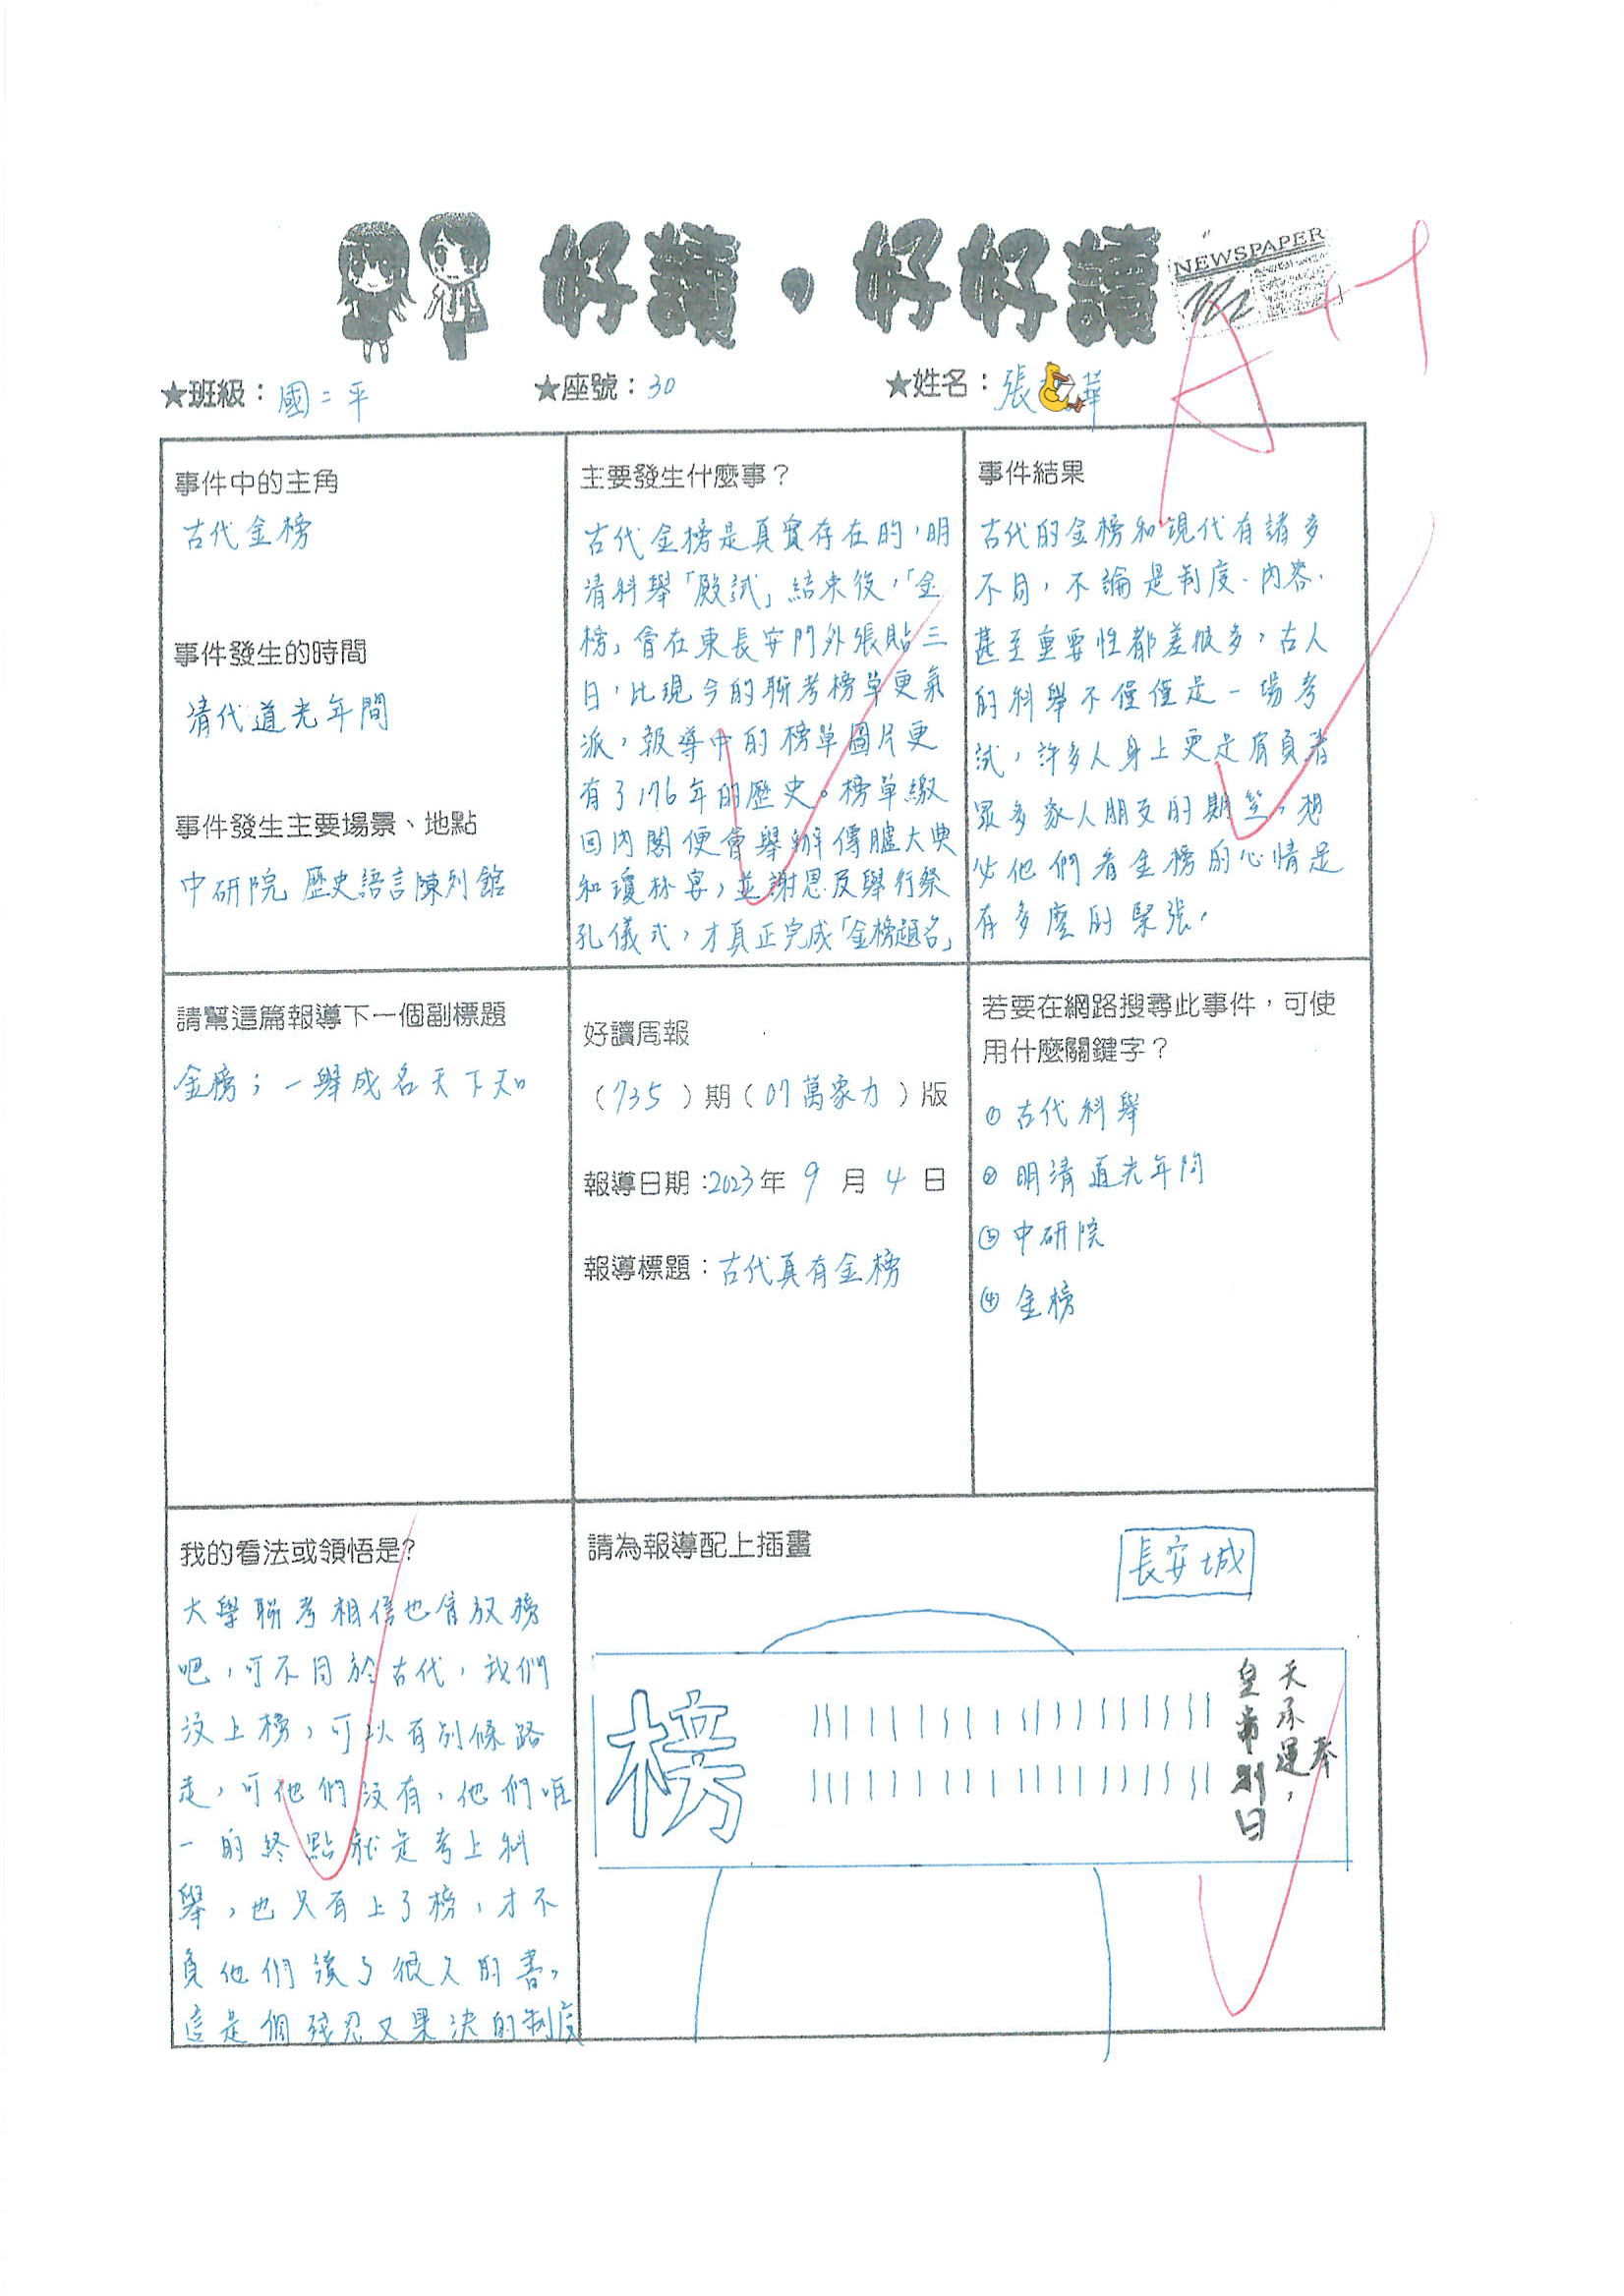 好讀・好好讀
NEWSPAPER
A+1
★班級：國二平
★座號：30
★姓名：張 華
事件中的主角
古代金榜
事件發生的時間
清代道光年間
事件發生主要場景、地點
中研院 歷史語言陳列館
主要發生什麼事？
古代金榜是真實存在的，明
清科舉「殿試」結束後，「金
榜」會在東長安門外張貼三
日，比現今的聯考榜單更氣
派，報導中的榜單圖片更
有了176年的歷史。榜單繳
回內閣便會舉辦傳臚大典
和瓊林宴，並謝恩及舉行祭
孔儀式，才真正完成「金榜題名」
事件結果
古代的金榜和現代有諸多
不同，不論是制度、內容、
甚至重要性都差很多，古人
的科舉不僅僅是一場考
試，許多人身上更是肩負著
眾多家人朋友的期望，想
必他們看金榜的心情是
有多麼的緊張，
請幫這篇報導下一個副標題
金榜；一舉成名天下知
好讀周報
（735）期（07萬家力）版
報導日期：2023年 9 月 4 日
報導標題：古代真有金榜
若要在網路搜尋此事件，可使
用什麼關鍵字？
① 古代科舉
② 明清道光年間
③ 中研院
④ 金榜
我的看法或領悟是？
大學聯考相信也會放榜
吧，可不同於古代，我們
沒上榜，可以有別條路
走，可他們沒有，他們唯
一的終點就是考上科
舉，也只有上了榜，才不
負他們讀了很久的書，
這是個殘忍又果決的制度
請為報導配上插畫
長安城
奉
天承運，
皇帝詔曰
榜